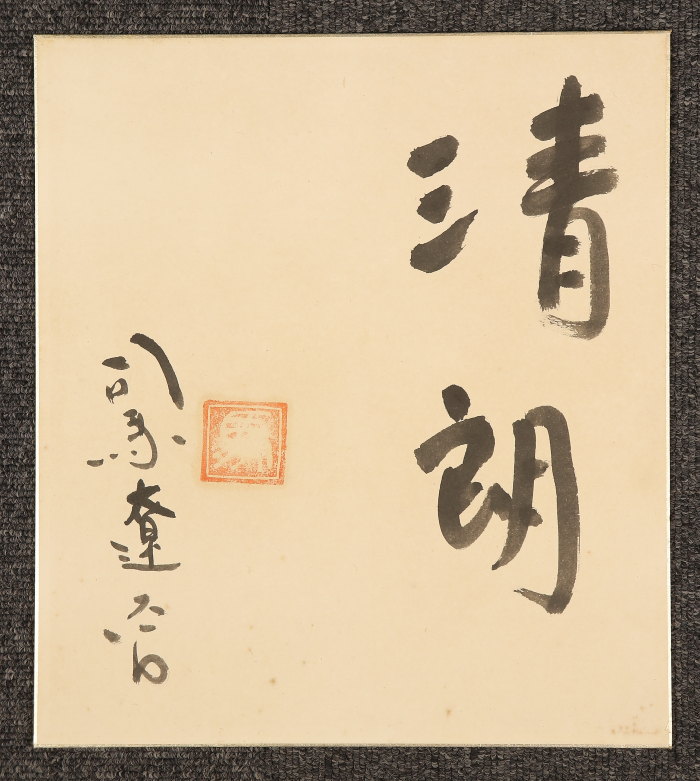 清朗
司馬遼太郎